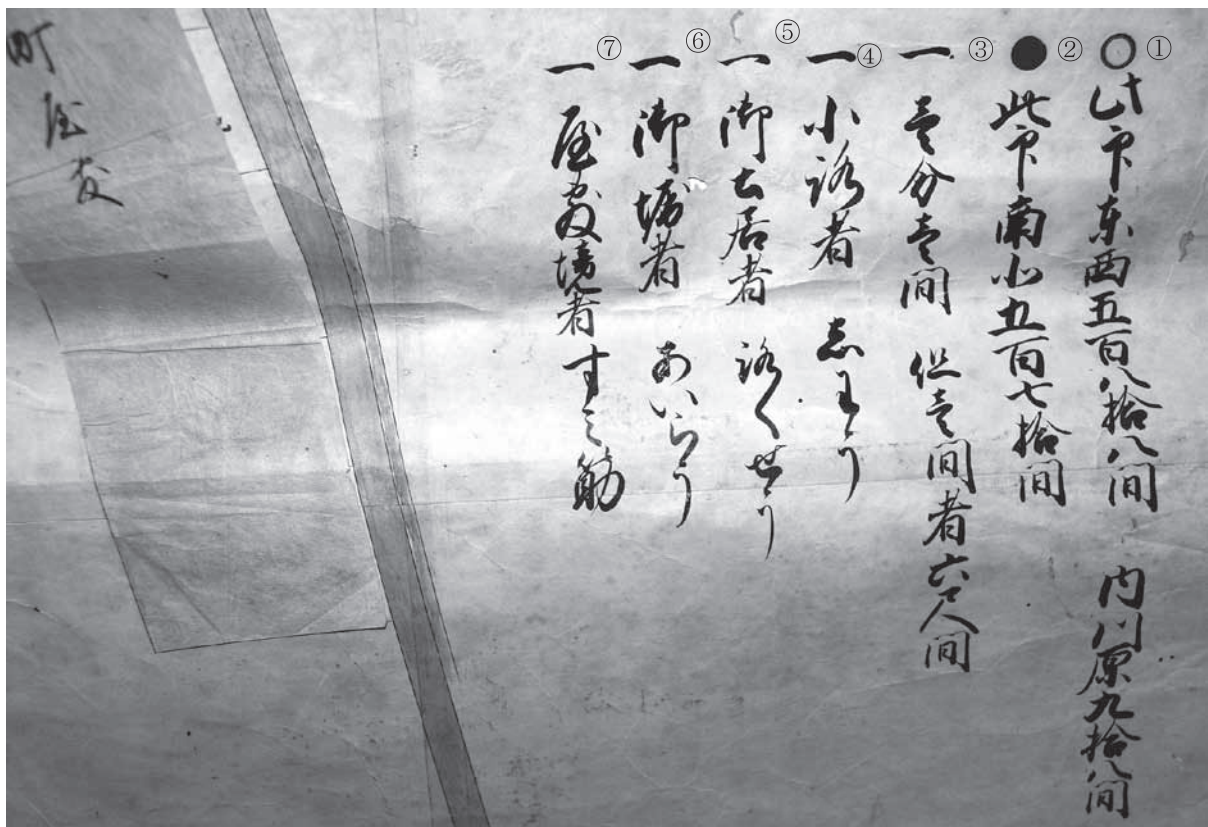 ① ○此印東西五百八拾八間 内川原九拾八間
② ●此印南北五百七拾間
③ 一 壱分壱間 但壱間者六尺間
④ 一 小路者 志わう
⑤ 一 御土居者 路くせう
⑥ 一 御堀者 あいらう
⑦ 一 屋敷境者すミ筋
町屋敷